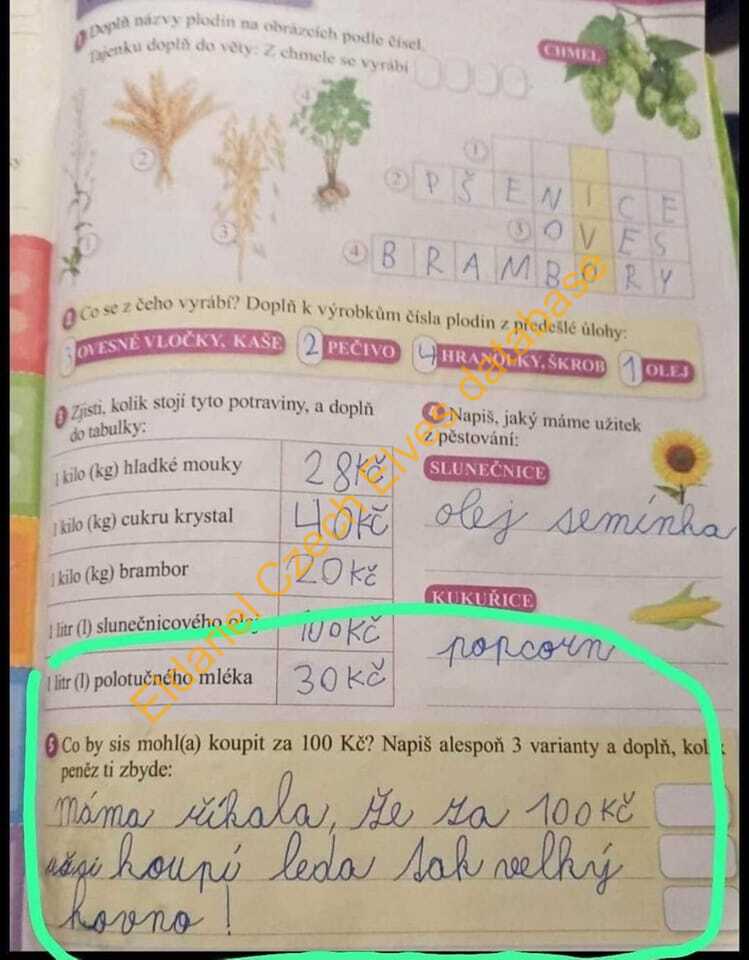 1 Doplň názvy plodin na obrázcích podle čísel.
Tajenku doplň do věty: Z chmele se vyrábí
CHMEL
4
2
3
1
1
2 PŠENICE
3 OVES
4 BRAMBORY
2 Co se z čeho vyrábí? Doplň k výrobkům čísla plodin z předešlé úlohy:
3 OVESNÉ VLOČKY, KAŠE 2 PEČIVO 4 HRANOLKY, ŠKROB 1 OLEJ
3 Zjisti, kolik stojí tyto potraviny, a doplň
do tabulky:
1 kilo (kg) hladké mouky 28Kč
1 kilo (kg) cukru krystal 40Kč
1 kilo (kg) brambor 20Kč
1 litr (l) slunečnicového olej 100Kč
1 litr (l) polotučného mléka 30Kč
4 Napiš, jaký máme užitek
z pěstování:
SLUNEČNICE
olej semínka
KUKUŘICE
popcorn
5 Co by sis mohl(a) koupit za 100 Kč? Napiš alespoň 3 varianty a doplň, kolik
peněz ti zbyde:
Máma říkala, že za 100Kč
koupí leda tak velký
hovno!
Eldaniel Czech Elves database